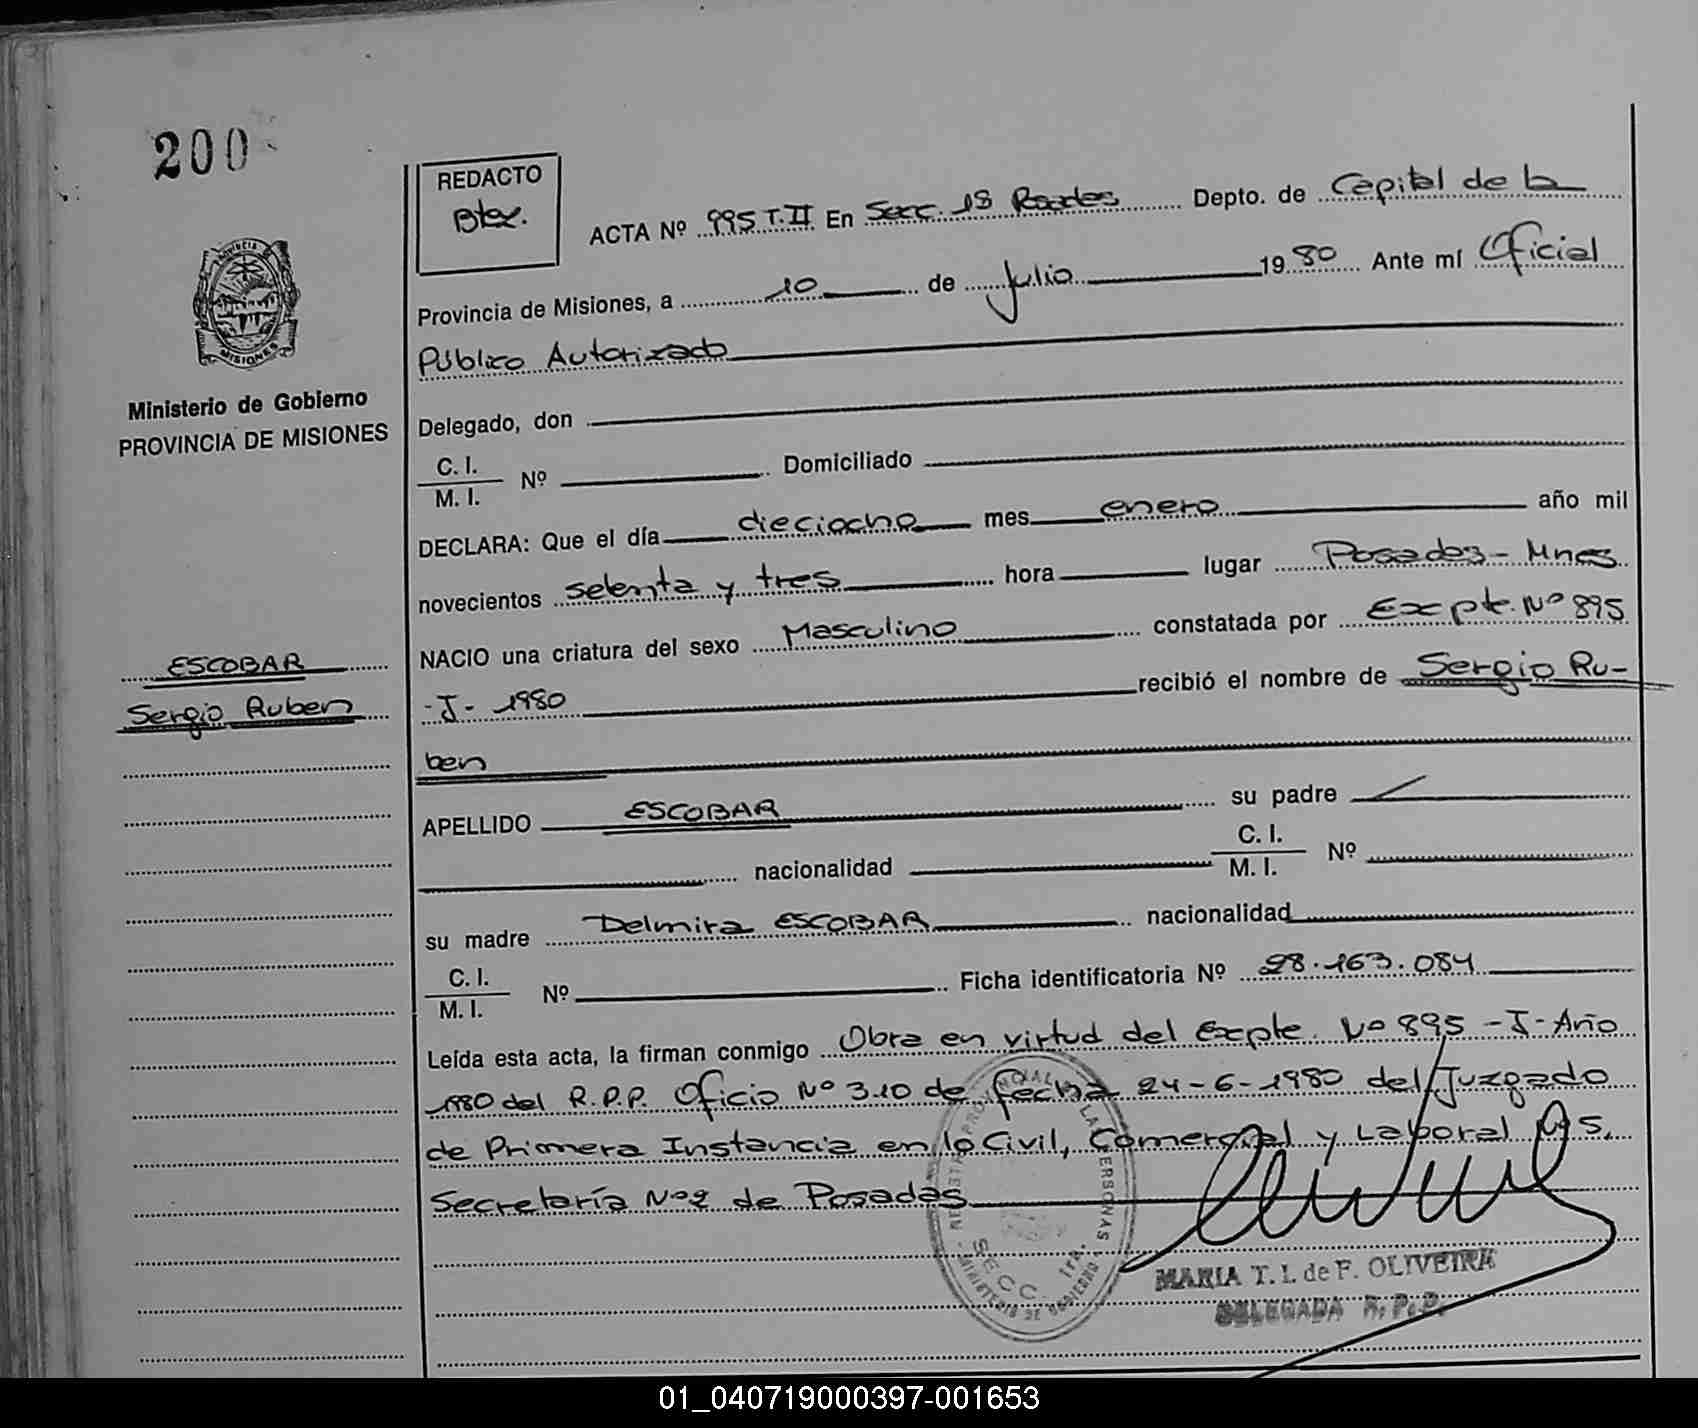 200
REDACTO
ACTA Nº 995 T.II En Secc. 1ª Posadas Depto. de Capital de la
Provincia de Misiones, a 10 de Julio 1980 Ante mí Oficial
Público Autorizado
PROVINCIA
MISIONES
Ministerio de Gobierno
PROVINCIA DE MISIONES
Delegado, don
C. I.
M. I.
Nº Domiciliado
DECLARA: Que el día dieciocho mes enero año mil
novecientos setenta y tres hora lugar Posadas - Mnes
NACIO una criatura del sexo Masculino constatada por Expte. Nº 895
- J - 1980 recibió el nombre de Sergio Ru-
ben
ESCOBAR
Sergio Ruben
APELLIDO ESCOBAR su padre
nacionalidad C. I.
M. I. Nº
su madre Delmira ESCOBAR nacionalidad
C. I.
M. I.
Nº Ficha identificatoria Nº 28.163.084
Leída esta acta, la firman conmigo Obra en virtud del Excpte. Nº 895 - J - Año
1980 del R.P.P. Oficio Nº 310 de fecha 24-6-1980 del Juzgado
de Primera Instancia en lo Civil, Comercial y Laboral
Secretaría Nº 2 de Posadas
SECC. 1ra.
MARIA T. I. de F. OLIVEIRA
DELEGADA R. P. P.
01_040719000397-001653